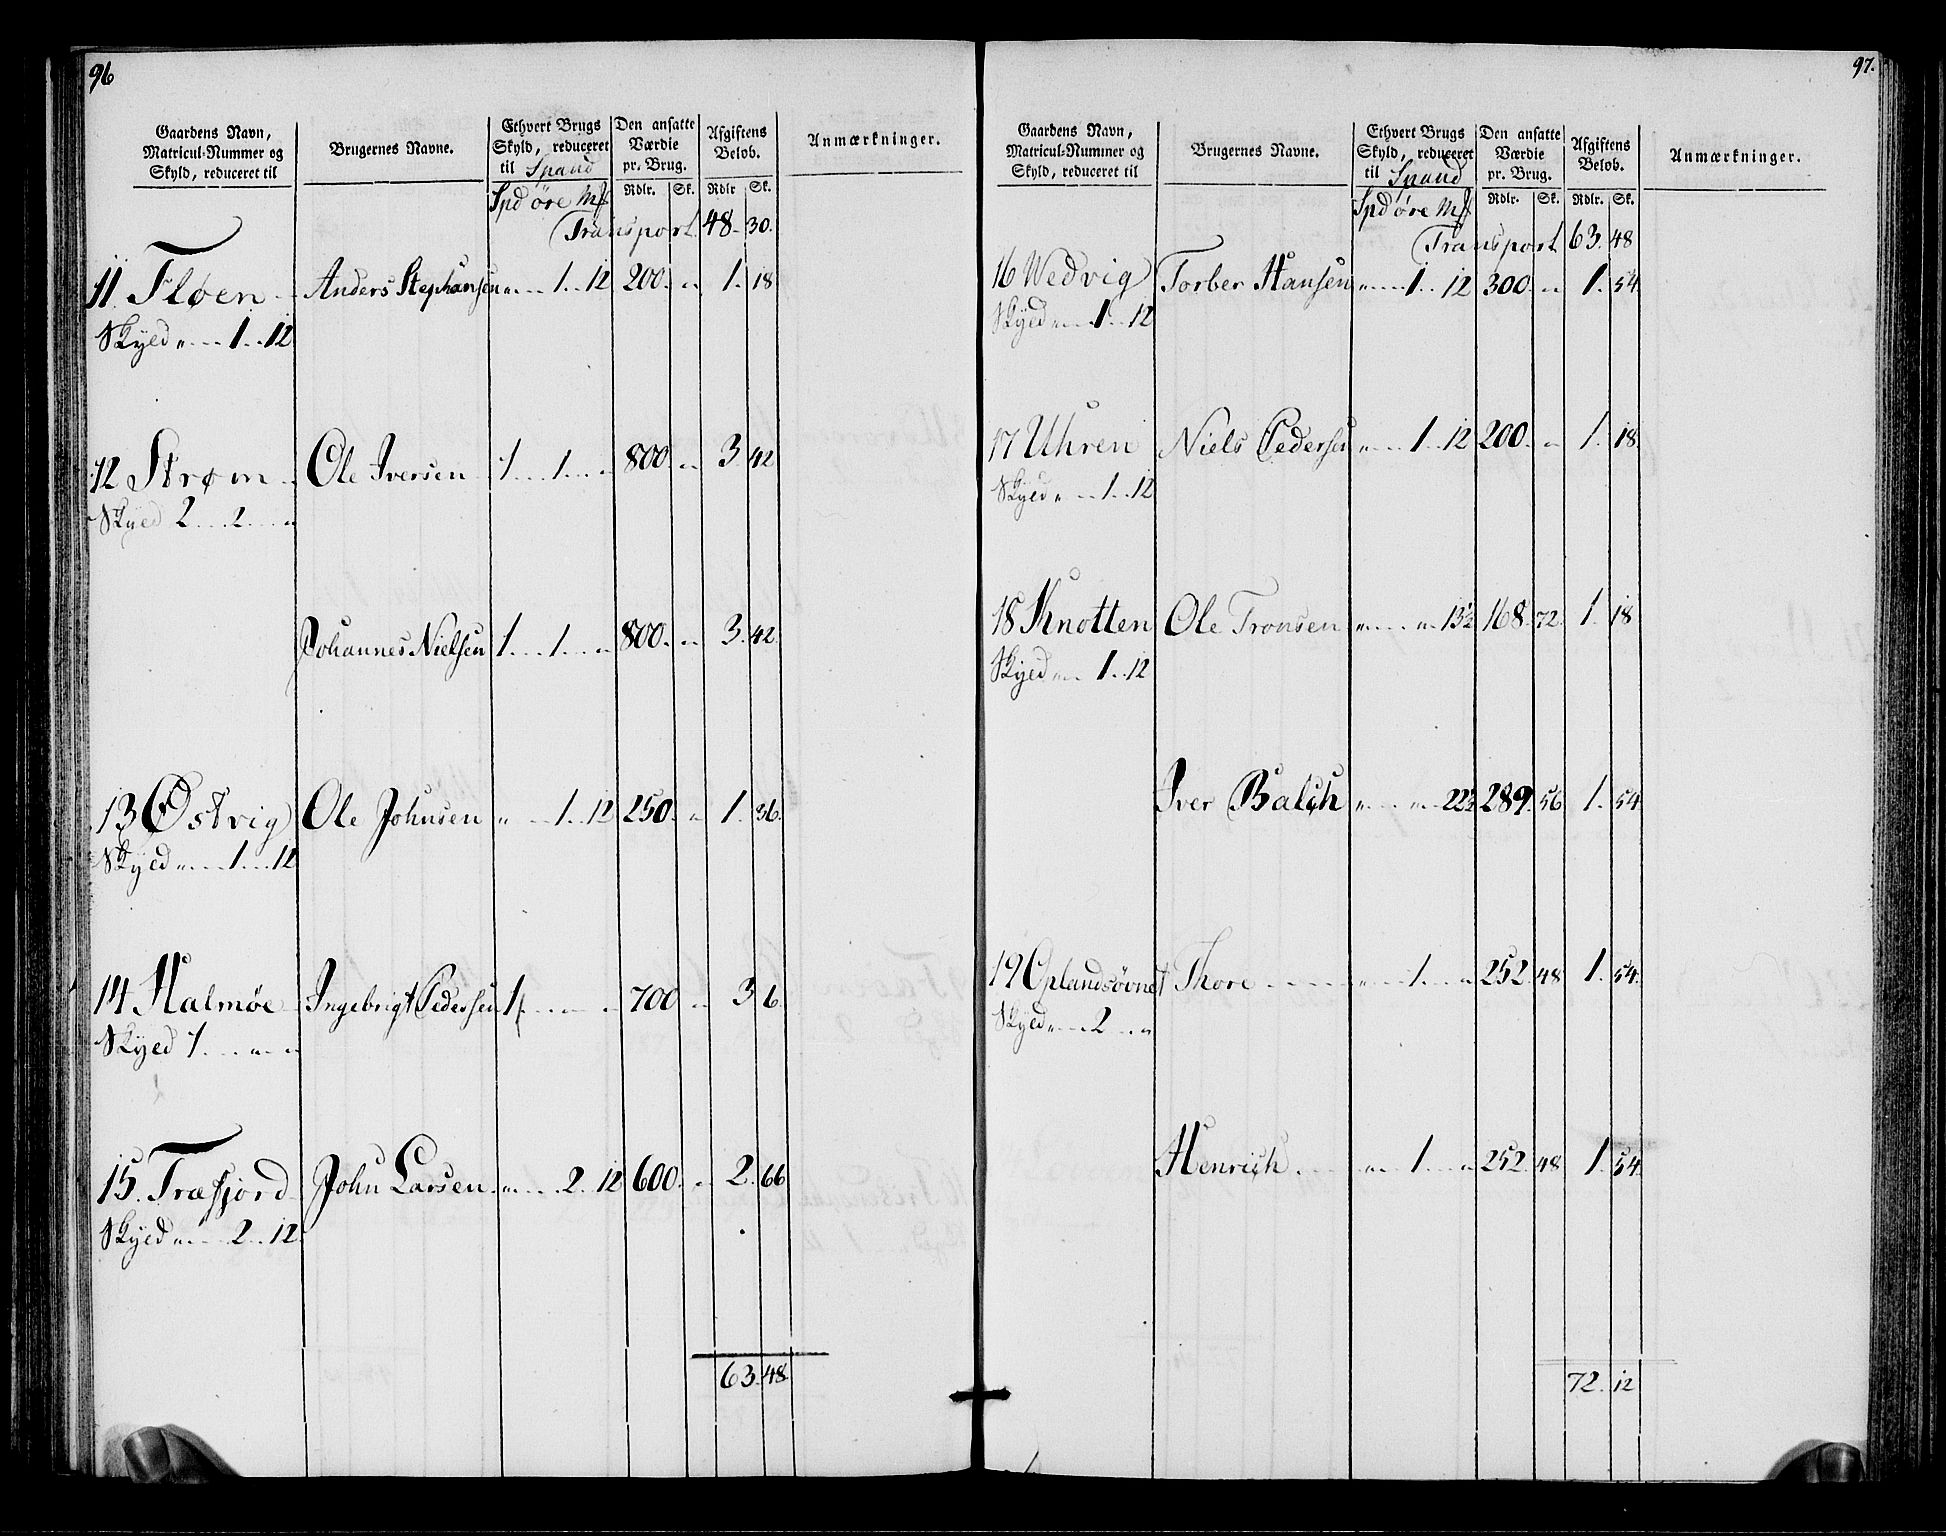 96
Gaardens Navn, Matricul-Nummer og Skyld, reduceret til | Brugernes Navne. | Ethvert Brugs Skyld, reduceret til Spand | Den ansatte Værdie pr. Brug. | Afgiftens Beløb. | Anmærkninger.
Spd øre Mk | Rdlr. | Sk. | Rdlr | Sk.
Transport 48. 30.
11 Fløen Anders Stephansen „ 1 12 200. „ 1. 18
Skyld „ 1 12
12 Strøm Ole Iversen 1 1 „ 800. „ 3. 42
Skyld 2 2 „
Johannes Nielsen 1 1 „ 800. „ 3. 42.
13 Østvig Ole Johnsen „ 1 12 250. „ 1. 36.
Skyld „ 1 12
14 Halmøe Ingebrigt Pedersen 1 „ „ 700 „ 3 6.
Skyld 1 „ „
15. Træfjord John Larsen „ 2 12 600. „ 2. 66
Skyld „ 2 12
63. 48
97.
Gaardens Navn, Matricul-Nummer og Skyld, reduceret til | Brugernes Navne. | Ethvert Brugs Skyld, reduceret til Spand | Den ansatte Værdie pr. Brug. | Afgiftens Beløb. | Anmærkninger.
Spd øre Mk | Rdlr. | Sk. | Rdlr. | Sk.
Transport 63. 48
16 Wedvig Torber Hansen „ 1 12 300. „ 1. 54.
Skyld „ 1 12
17 Uhren Niels Pedersen „ 1 12 200. „ 1. 18.
Skyld „ 1 12
18 Knotten Ole Tronsen „ „ 13½ 168. 72. 1. 18
Skyld „ 1 12
Iver Balch „ „ 22½ 289. 56. 1. 54.
19 Oplandsøvnet Thore „ 1 „ 252. 48. 1. 54.
Skyld „ 2 „
Henrich „ 1 „ 252. 48 1. 54.
72. 12